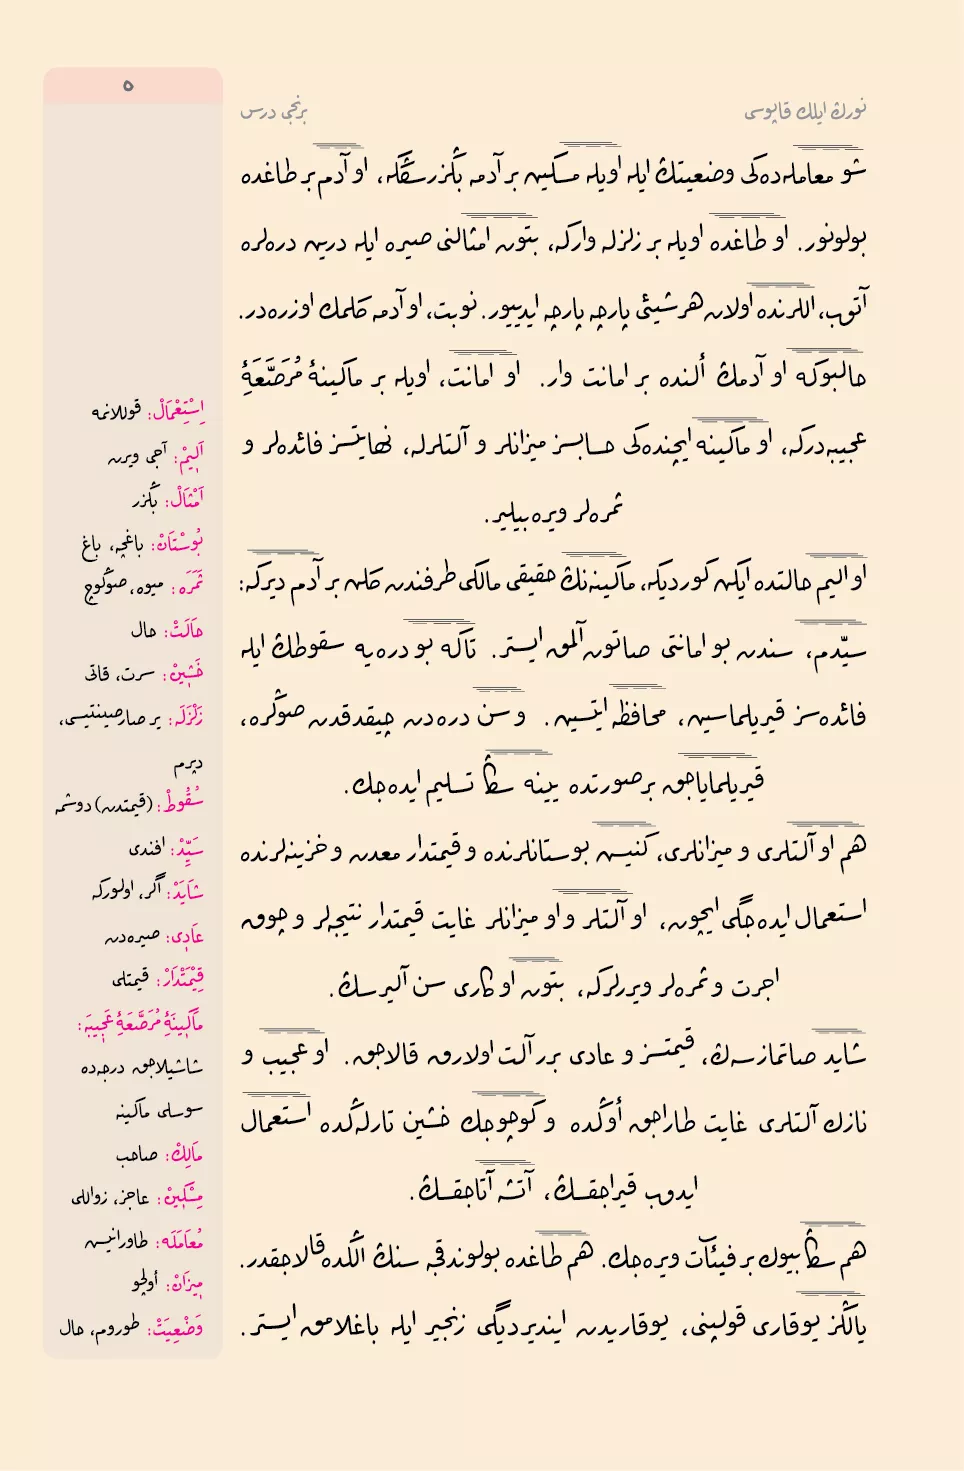 نورڭ ايلك قاپوسی
برنجی درس
٥
شو معامله‌ده‌كی وضعيتڭ ايله اويله مسكين بر آدمه بڭزرسڭكه، او آدم بر طاغده
بولونور. او طاغده اويله بر زلزله واركه، بتون امثالنی صيره ايله درين دره‌لره
آتوب، اللرنده اولان هر شيئی پارچه پارچه ايدييور. نوبت، او آدمه كلمك اوزره‌در.
حالبوكه او آدمڭ ألنده بر امانت وار. او امانت، اويله بر ماكينۀ مُرَصَّعَۀِ
عجيبه‌دركه، او ماكينه ايچنده‌كی حسابسز ميزانلر و آلتلرله، نهايتسز فائده‌لر و
ثمره‌لر ويره‌بيلير.
او اليم حالتده ايكن كورديكه، ماكينه‌نڭ حقيقی مالكی طرفندن كلن بر آدم ديركه:
سيّدم، سندن بو امانتی صاتون آلمق ايستر. تاكه بو دره‌يه سقوطڭ ايله
فائده‌سز قيريلماسين، محافظه ايتسين. و سن دره‌دن چيقدقدن صوڭره،
قيريلماياجق بر صورتده يينه سڭا تسليم ايده‌جك.
هم او آلتلری و ميزانلری، كنيس بوستانلرنده و قيمتدار معدن و خزينه‌لرنده
استعمال ايده‌جگی ايچون، او آلتلر و او ميزانلر غايت قيمتدار نتيجه‌لر و چوق
اجرت و ثمره‌لر ويررلركه، بتون او كاری سن آليرسڭ.
شايد صاتمازسه‌ڭ، قيمتسز و عادی برر آلت اولارق قالاجق. او عجيب و
نازك آلتلری غايت طاراجق أوڭده و كوچوجك خشين تارله‌ڭده استعمال
ايدوب قيراجقسڭ، آتشه آتاجقسڭ.
هم سڭا بيوك بر فيئات ويره‌جك. هم طاغده بولوندقجه سنڭ الڭده قالاجقدر.
يالڭز يوقاری قولپنی، يوقاريدن اينديرديگی زنجير ايله باغلامق ايستر.
اِسْتِعْمَالْ: قوللانمه
اَلِيمْ: آجی ويرن
اَمْثَالْ: بڭزر
بُوسْتَانْ: باغچه، باغ
ثَمَرَه: ميوه، صوڭوچ
حَالَتْ: حال
خَشِينْ: سرت، قاتی
زَلْزَلَه: ير صارصينتيسی،
دپرم
سُقُوطْ: (قيمتدن) دوشمه
سَيِّدْ: افندی
شَايَدْ: أگر، اولوركه
عَادِی: صيره‌دن
قِيْمَتْدَارْ: قيمتلی
مَاكِينَۀِ مُرَصَّعَۀِ عَجِيبَه:
شاشيلاجق درجه‌ده
سوسلی ماكينه
مَالِكْ: صاحب
مِسْكِينْ: عاجز، زواللی
مُعَامَلَه: طاورانيس
مِيزَانْ: أولچو
وَضْعِيَتْ: طوروم، حال